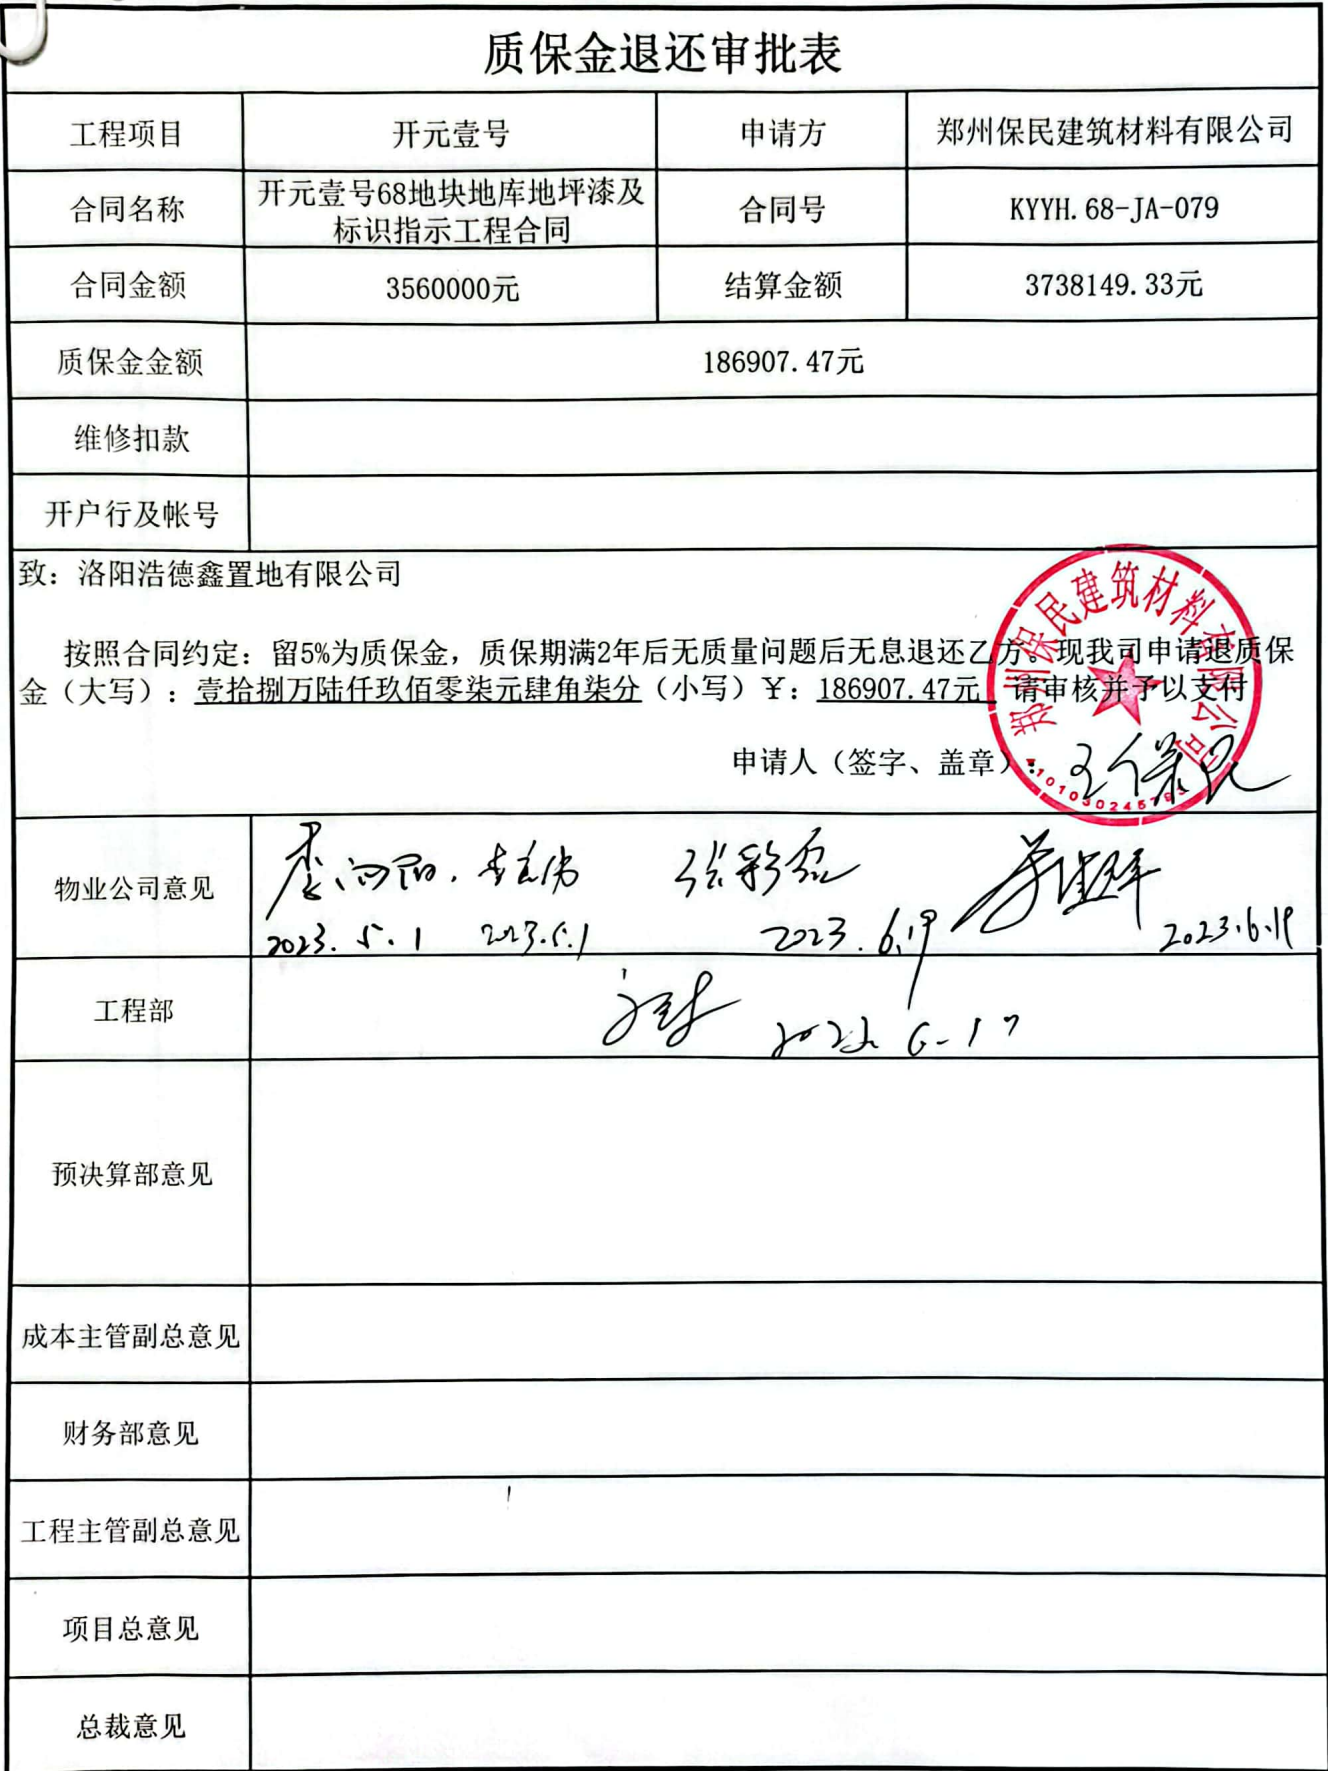 质保金退还审批表
工程项目 开元壹号 申请方 郑州保民建筑材料有限公司
合同名称 开元壹号68地块地库地坪漆及标识指示工程合同 合同号 KYYH.68-JA-079
合同金额 3560000元 结算金额 3738149.33元
质保金金额 186907.47元
维修扣款
开户行及帐号
致：洛阳浩德鑫置地有限公司
按照合同约定：留5%为质保金，质保期满2年后无质量问题后无息退还乙方。现我司申请退质保
金（大写）：壹拾捌万陆仟玖佰零柒元肆角柒分（小写）￥：186907.47元 请审核并予以支付
申请人（签字、盖章）：王保民
郑州保民建筑材料有限公司
物业公司意见
2023.5.1 2023.5.1 2023.6.19 2023.6.19
工程部
预决算部意见
成本主管副总意见
财务部意见
工程主管副总意见
项目总意见
总裁意见